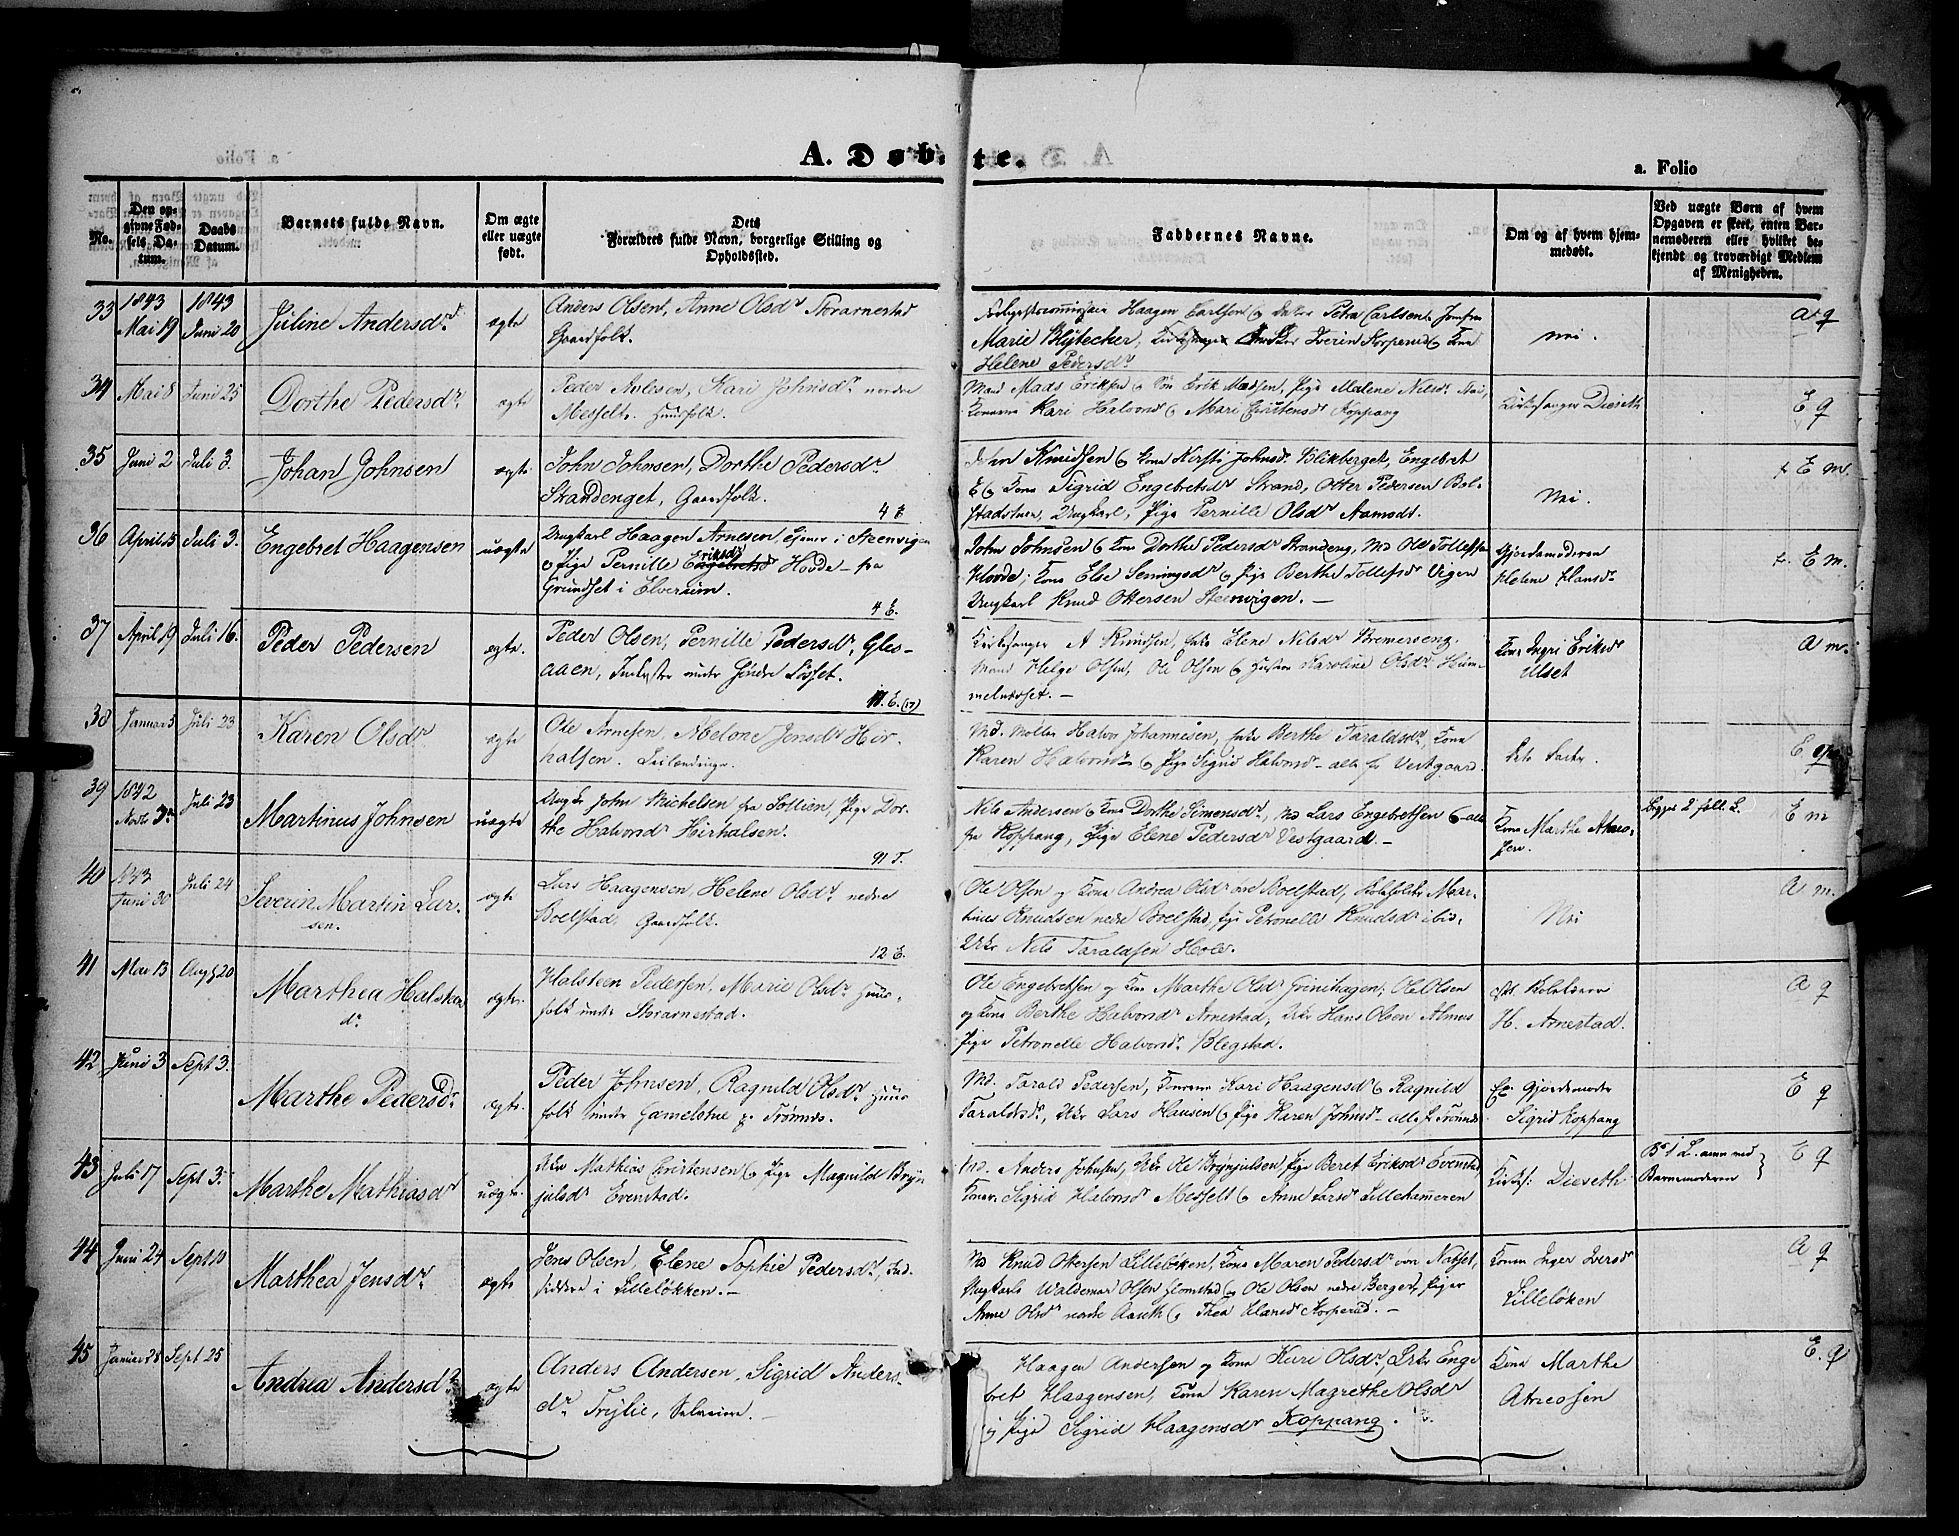 A. Døbte.
a. Folio
No.
Den opgivne Fødsels Datum.
Daabs Datum.
Barnets fulde Navn.
Om ægte eller uægte født.
Dets Forældres fulde Navn, borgerlige Stilling og Opholdssted.
Faddernes Navne.
Om og af hvem hjemmedøbt.
Ved uægte Børn af hvem Opgaven er skeet, enten Barnemoderen eller hvilket bekjendt og troværdigt Medlem af Menigheden.
33 1843 Mai 19 1843 Juni 20 Juline Andersdr ægte
Anders Olsen, Anne Olsdr Storarnestad
Gaardfolk.
Haagen Carlsen Petra Carlsen, Jomfru
Marie Klytecker, Iverin Korperud og Kona
Helene Pedersdr
nei.
A q
34 Mai 8 Juni 25 Dorthe Pedersdr. ægte
Peder Avlesen, Kari Johnsdr nordre
Messelt. Huusfolk.
Mand Mads Eriksen og Søn Erik Madsen, Pige Malene Nilsdr Stai,
Konerne Kari Halvorsd og Mari Cristensdr Koppang
Kirkesanger Dieseth
E q
35 Juni 2 Juli 3. Johan Johnsen ægte
John Johnsen, Dorthe Pedersdr
Strandenget, Gaardfolk.
4 E
John Knudsen og Kona Kirsti Johnsdr Blikberget, Engebret
E og Kona Sigrid Engebretsdr Strand, Otter Pedersen Bol-
stadstuen, Ungkarl, Pige Pernille Olsdr Aamodt.
Nei.
E m.
36 April 15 Juli 3. Engebret Haagensen uægte
Ungkarl Haagen Arnesen, Eier i Steenvigen
og Pige Pernille Eriksdr Hovde – fra
Grundset i Elverum.
4 E.
John Johnsen og Kona Dorthe Pedersdr Strandeng, Md Ole Tollefsen
Hovde; Kona Else Semingsdr og Pige Berthe Tollefsdr Vigen
Ungkarl Knud Ottersen Steenvigen. –
Gjordemoderen
Helene Hansdr
E m.
37 April 19 Juli 16. Peder Pedersen ægte.
Peder Olsen, Pernille Pedersdr, Gles-
aaen, Inderster under Søndre Løsset.
11. E. (17)
Kirkesanger A Knudsen, Enke Elene Nilsdr Bremerseng.
Mand Helge Olsen, Ole Olsen og Hustru Karoline Olsdr Him-
melaasset. –
Kona Ingri Eriksdr
Ulset
A m.
38 Januar 5 Juli 23 Karen Olsdr ægte
Ole Arnesen, Abelone Jensdr Hir-
halsen. Leilændinge.
Md. Møller Halvor Johannesen, Enke Berthe Taraldsdr, Kona
Karen Halvorsd og Pige Sigrid Halvorsd – alle fr Vestgaard.
E q
39 1842 Juli 23 Martinus Johnsen uægte
Ungkr John Michelsen fra Sollien, Pige Dor-
the Halvorsdr Hirhalsen.
91 T.
Nils Andersen og Kona Dorthe Simensdr, Md Lars Engebretsen – alle
fr Koppang, Pige Elene Pedersdr Vestgaard. –
Kona Marthe Atneo-
sen.
Begges 2 fald. L.
E m
40 1843 Juni 30 Juli 24 Severin Martin Lar-
sen.
ægte
Lars Haagensen, Helene Olsdr nedre
Bolstad, Gaardfolk.
12 E.
Ole Olsen og Kona Andrea Olsdr øvre Bolstad, Mar-
tinus Knudsen nedre Bolstad, Pige Petronelle Knudsdr ibid.
Ukr Nils Taraldsen Hole.
Nei
A m.
41 Mai 13 Aug 20 Marthea Halsten
dr.
ægte.
Halsteen Pedersen, Marie Olsdr, Huus-
folk under Storarnestad.
Ole Engebretsen og Kona Marthe Olsdr Grinihagen; Ole Olsen
og Kona Berthe Halvorsdr Arnestad; Ukr Hans Olsen Almus
Pige Petronelle Halvorsdr. Blegstad.
H. Arnestad.
A q
42 Juni 3 Sept 3. Marthe Pedersdr. ægte.
Peder Johnsen, Ragnild Olsdr. Huus
folk under Gamelstue p Trønnes.
Md. Tarald Pedersen, Konerne Kari Haagensdr og Ragnild
Taraldsdr, Ukr Lars Hansen og Pige Karen Johnsd – alle fr Trønnes
Ex. Gjordemoder
Sigrid Koppang
E q
43 Juli 17 Sept 3. Marthe Mathiasdr uægte.
Ukr Mathias Cristensen og Pige Magnild Bryn
julsdr Evenstad.
Md. Anders Johnsen, Ukr Ole Brynjulsen, Pige Beret Eriksdr Evenstad,
Koner Sigrid Halvorsdr Messelt og Anne Larsdr Lillehammeren
Kirkes: Dieseth
Barnemoderen
E q
44 Juni 24 Sept 10 Marthea Jensdr ægte
Jens Olsen, Elene Sophie Pedersdr, Ind-
siddere i Lilleløkken. –
Md Knud Ottersen Lilleløkken, Kona Maren Pedersdr øvre Natset,
Ungkarle Waldemar Olsen Glomstad og Ole Olsen nedre Berget, Piger
Anne Olsdr nordre Aaseth og Thea Hansdr Korperud. –
Konen Inger Iversdr
Lilleløken
A q
45 Januar 28 Sept 25 Andrea Andersdr. ægte
Anders Andersen, Sigrid Anders-
dr Trylie, Selveiere. –
Haagen Andersen og Kona Kari Olsdr, Ukr Enge
bret Haagensen, Kona Karen Magrethe Olsdr
og Pige Sigrid Haagensdr Koppang.
Kona Marthe
Atneosen
E. q